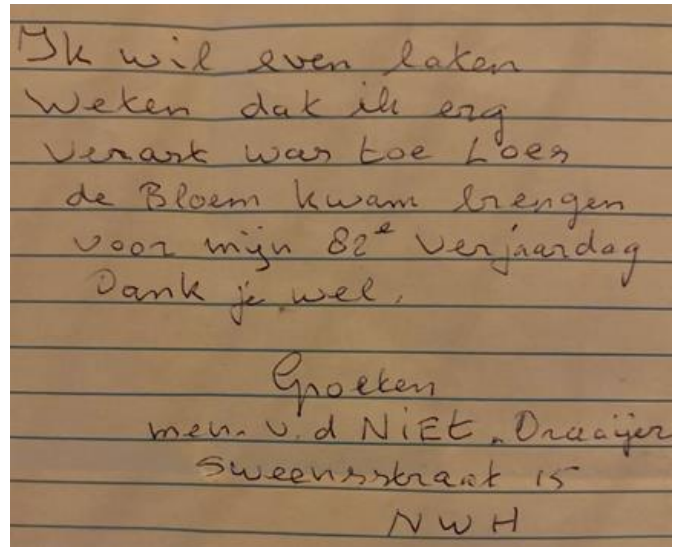 Ik wil even laten
weten dat ik erg
verast was toe Loes
de Bloem kwam brengen
voor mijn 82e verjaardag
Dank je wel.
Groeten
mev. v.d NiEt. Draaijer
Sweensstraat 15
NWH